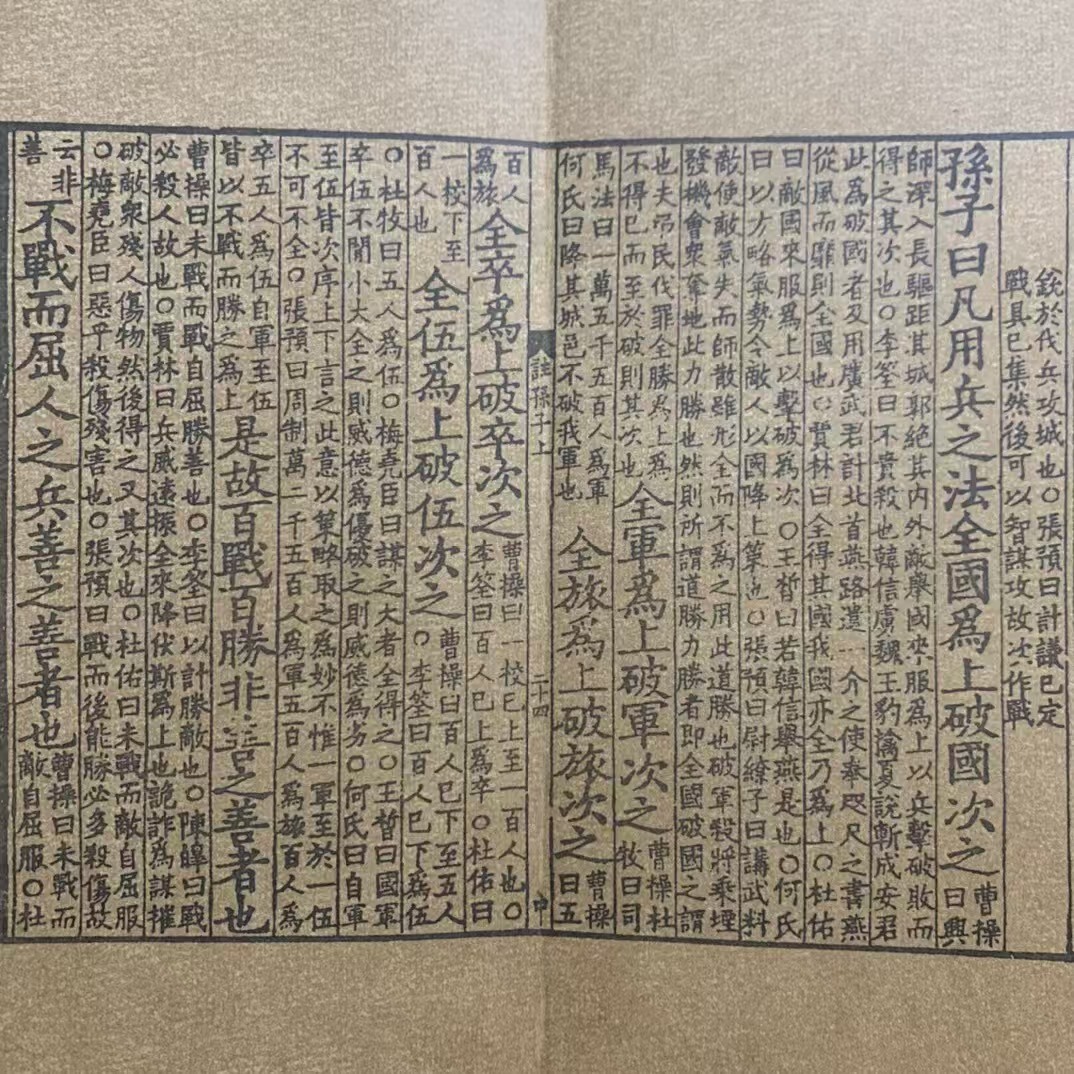 銳於伐兵攻城也〇張預曰計議已定
戰具已集然後可以智謀攻故次作戰
孫子曰凡用兵之法全國爲上破國次之
曹操
曰興
師深入長驅距其城郭絶其内外敵舉國來服爲上以兵擊破敗而
得之其次也〇李筌曰不貴殺也韓信虜魏王豹擒夏說斬成安君
此爲破國者及用廣武君計北首燕路遣一介之使奉咫尺之書燕
從風而靡則全國也〇賈林曰全得其國我國亦全乃爲上〇杜佑
曰敵國來服爲上以擊破爲次〇王晳曰若韓信舉燕是也〇何氏
曰以方略氣勢令敵人以國降上策也〇張預曰尉繚子曰講武料
敵使敵氣失而師散雖形全而不爲之用此道勝也破軍殺將乘堙
發機會衆奪地此力勝也然則所謂道勝力勝者即全國破國之謂
也夫弔民伐罪全勝爲上爲
不得已而至於破則其次也
全軍爲上破軍次之
曹操杜
牧曰司
馬法曰一萬五千五百人爲軍
何氏曰降其城邑不破我軍也
全旅爲上破旅次之
曹操
曰五
註孫子上
二十四
百人
爲旅
全卒爲上破卒次之
曹操曰一校已上至一百人也〇
李筌曰百人已上爲卒〇杜佑曰
一校下至
百人也
全伍爲上破伍次之
曹操曰百人已下至五人
〇李筌曰百人已下爲伍
〇杜牧曰五人爲伍〇梅堯臣曰謀之大者全得之〇王晳曰國軍
卒伍不間小大全之則威德爲優破之則威德爲劣〇何氏曰自軍
至伍皆次序上下言之此意以策略取之爲妙不惟一軍至於一伍
不可不全〇張預曰周制萬二千五百人爲軍五百人爲旅百人爲
卒五人爲伍自軍至伍
皆以不戰而勝之爲上
是故百戰百勝非善之善者也
曹操曰未戰而戰自屈勝善也〇李筌曰以計勝敵也〇陳皥曰戰
必殺人故也〇賈林曰兵威遠振全來降伏斯爲上也詭詐爲謀摧
破敵衆殘人傷物然後得之又其次也〇杜佑曰未戰而敵自屈服
〇梅堯臣曰惡乎殺傷殘害也〇張預曰戰而後能勝必多殺傷故
云非
善
不戰而屈人之兵善之善者也
曹操曰未戰而
敵自屈服〇杜